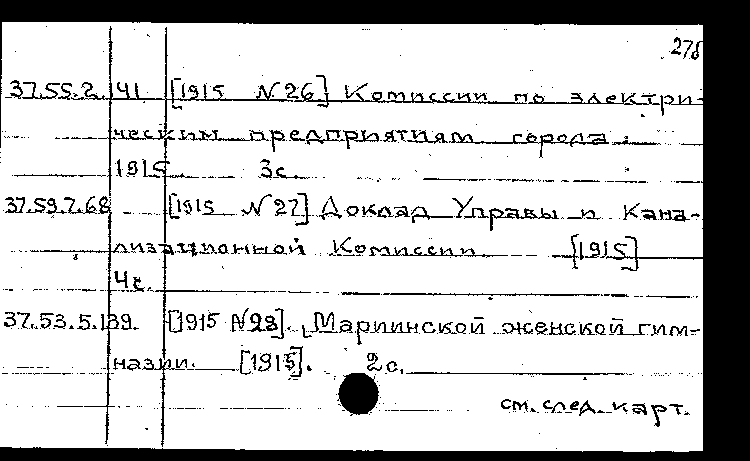 278
37.55.2.41 [1915 №26] Комиссии по электри-
ческим предприятиям города:
1915. 3с.
37.59.7.68 [1915 №27] Доклад Управы и Кана-
лизационной Комиссии [1915]
4с.
37.53.5.139. [1915 №28]. Мариинской женской гим-
назии. [1915]. 2с.
см. след. карт.